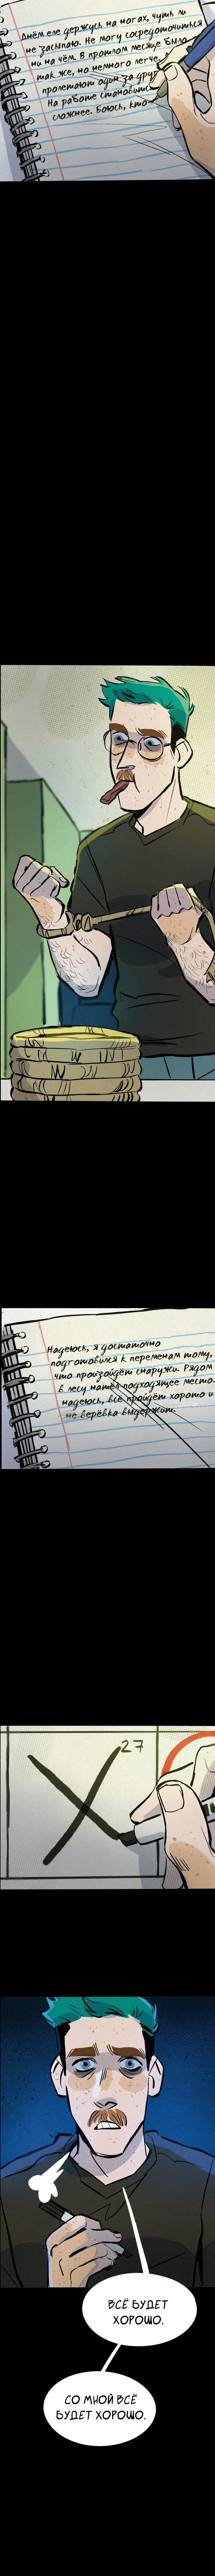 Днём еле держусь на ногах, чуть ли
не засыпаю. Не могу сосредоточиться
ни на чём. В прошлом месяце было
так же, но немного легче.
пролетают один за друг
На работе становитс
сложнее. Боюсь, кто
Надеюсь, я достаточно
подготовился к переменам тому,
что произойдёт снаружи. Рядом
в лесу нашёл подходящее место.
надеюсь, всё пройдёт хорошо и
не верёвка выдержит.
27
ВСЁ БУДЕТ
ХОРОШО.
СО МНОЙ ВСЁ
БУДЕТ ХОРОШО.